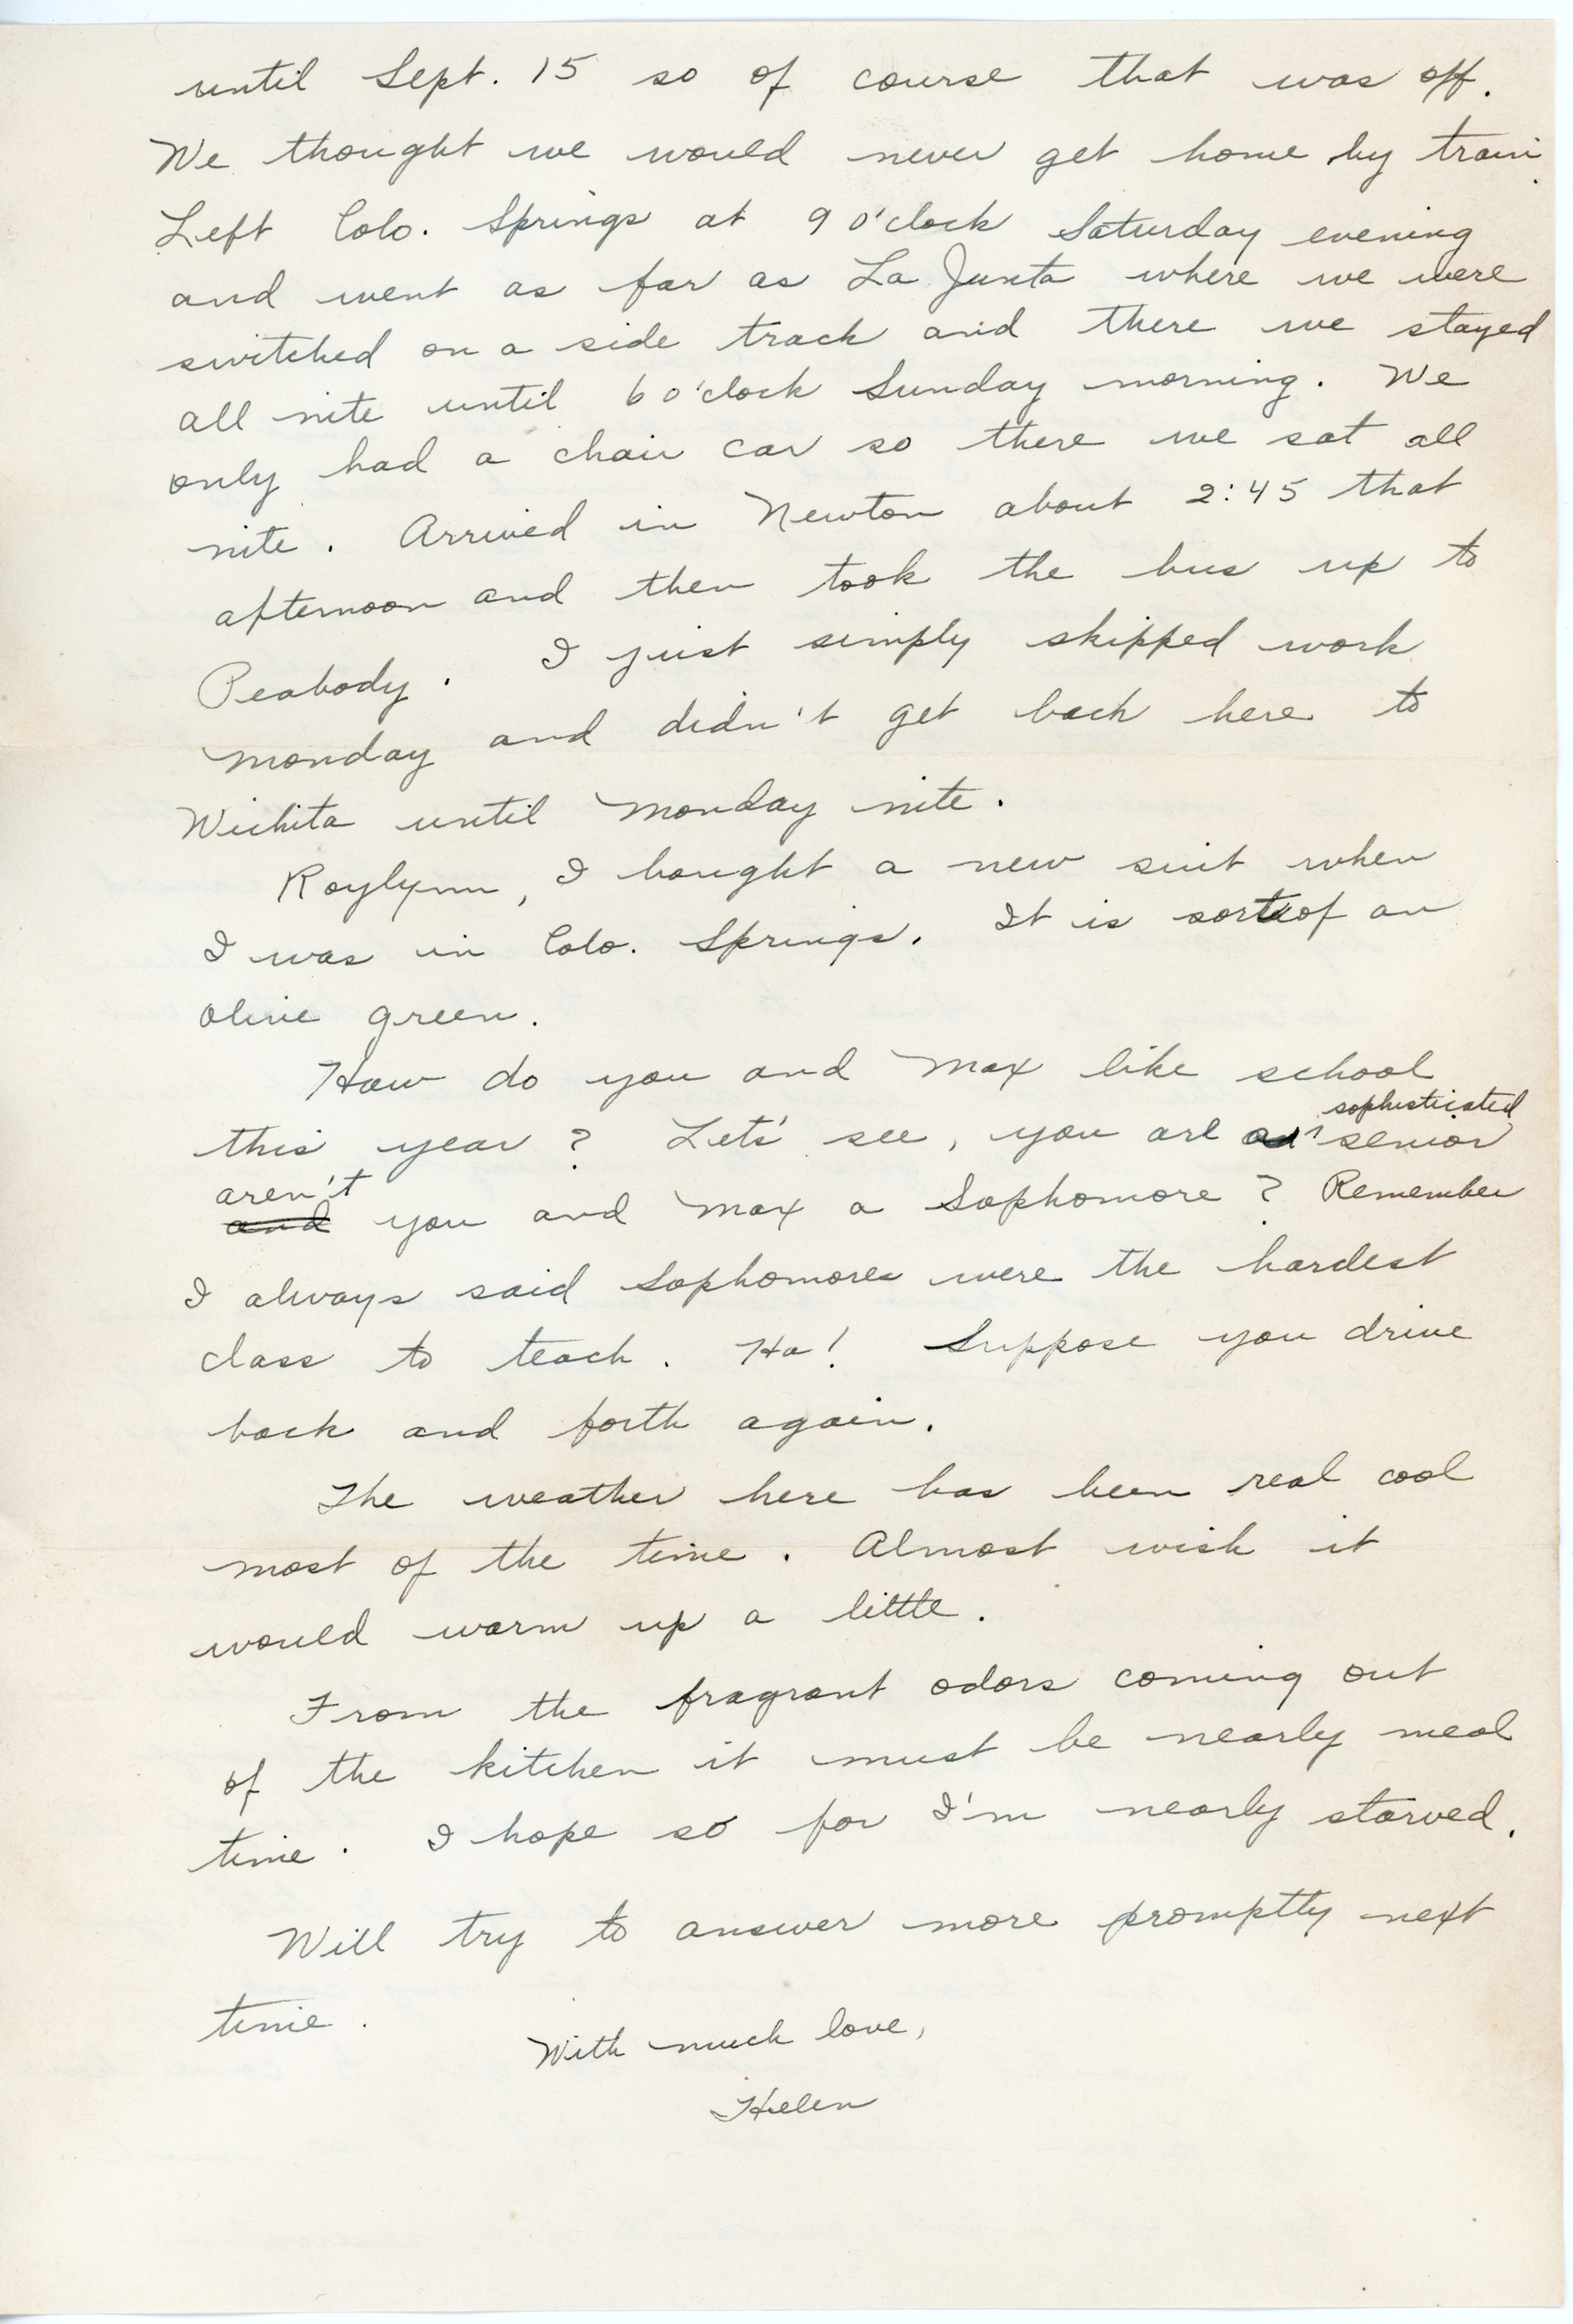 until Sept. 15 so of course that was off.
We thought we would never get home by train.
Left Colo. Springs at 9 o'clock Saturday evening
and went as far as La Junta where we were
switched on a side track and there we stayed
all nite until 6 o'clock Sunday morning. We
only had a chair car so there we sat all
nite. Arrived in Newton about 2:45 that
afternoon and then took the bus up to
Peabody. I just simply skipped work
Monday and didn't get back here to
Wichita until Monday nite.
Roylynn, I bought a new suit when
I was in Colo. Springs. It is sort of an
olive green.
How do you and Max like school
this year? Let's see, you are a sophisticated senior
aren't and you and Max a Sophomore? Remember
I always said Sophomores were the hardest
class to teach. Ha! Suppose you drive
back and forth again.
The weather here has been real cool
most of the time. Almost wish it
would warm up a little.
From the fragrant odors coming out
of the kitchen it must be nearly meal
time. I hope so for I'm nearly starved.
Will try to answer more promptly next
time.
With much love,
Helen